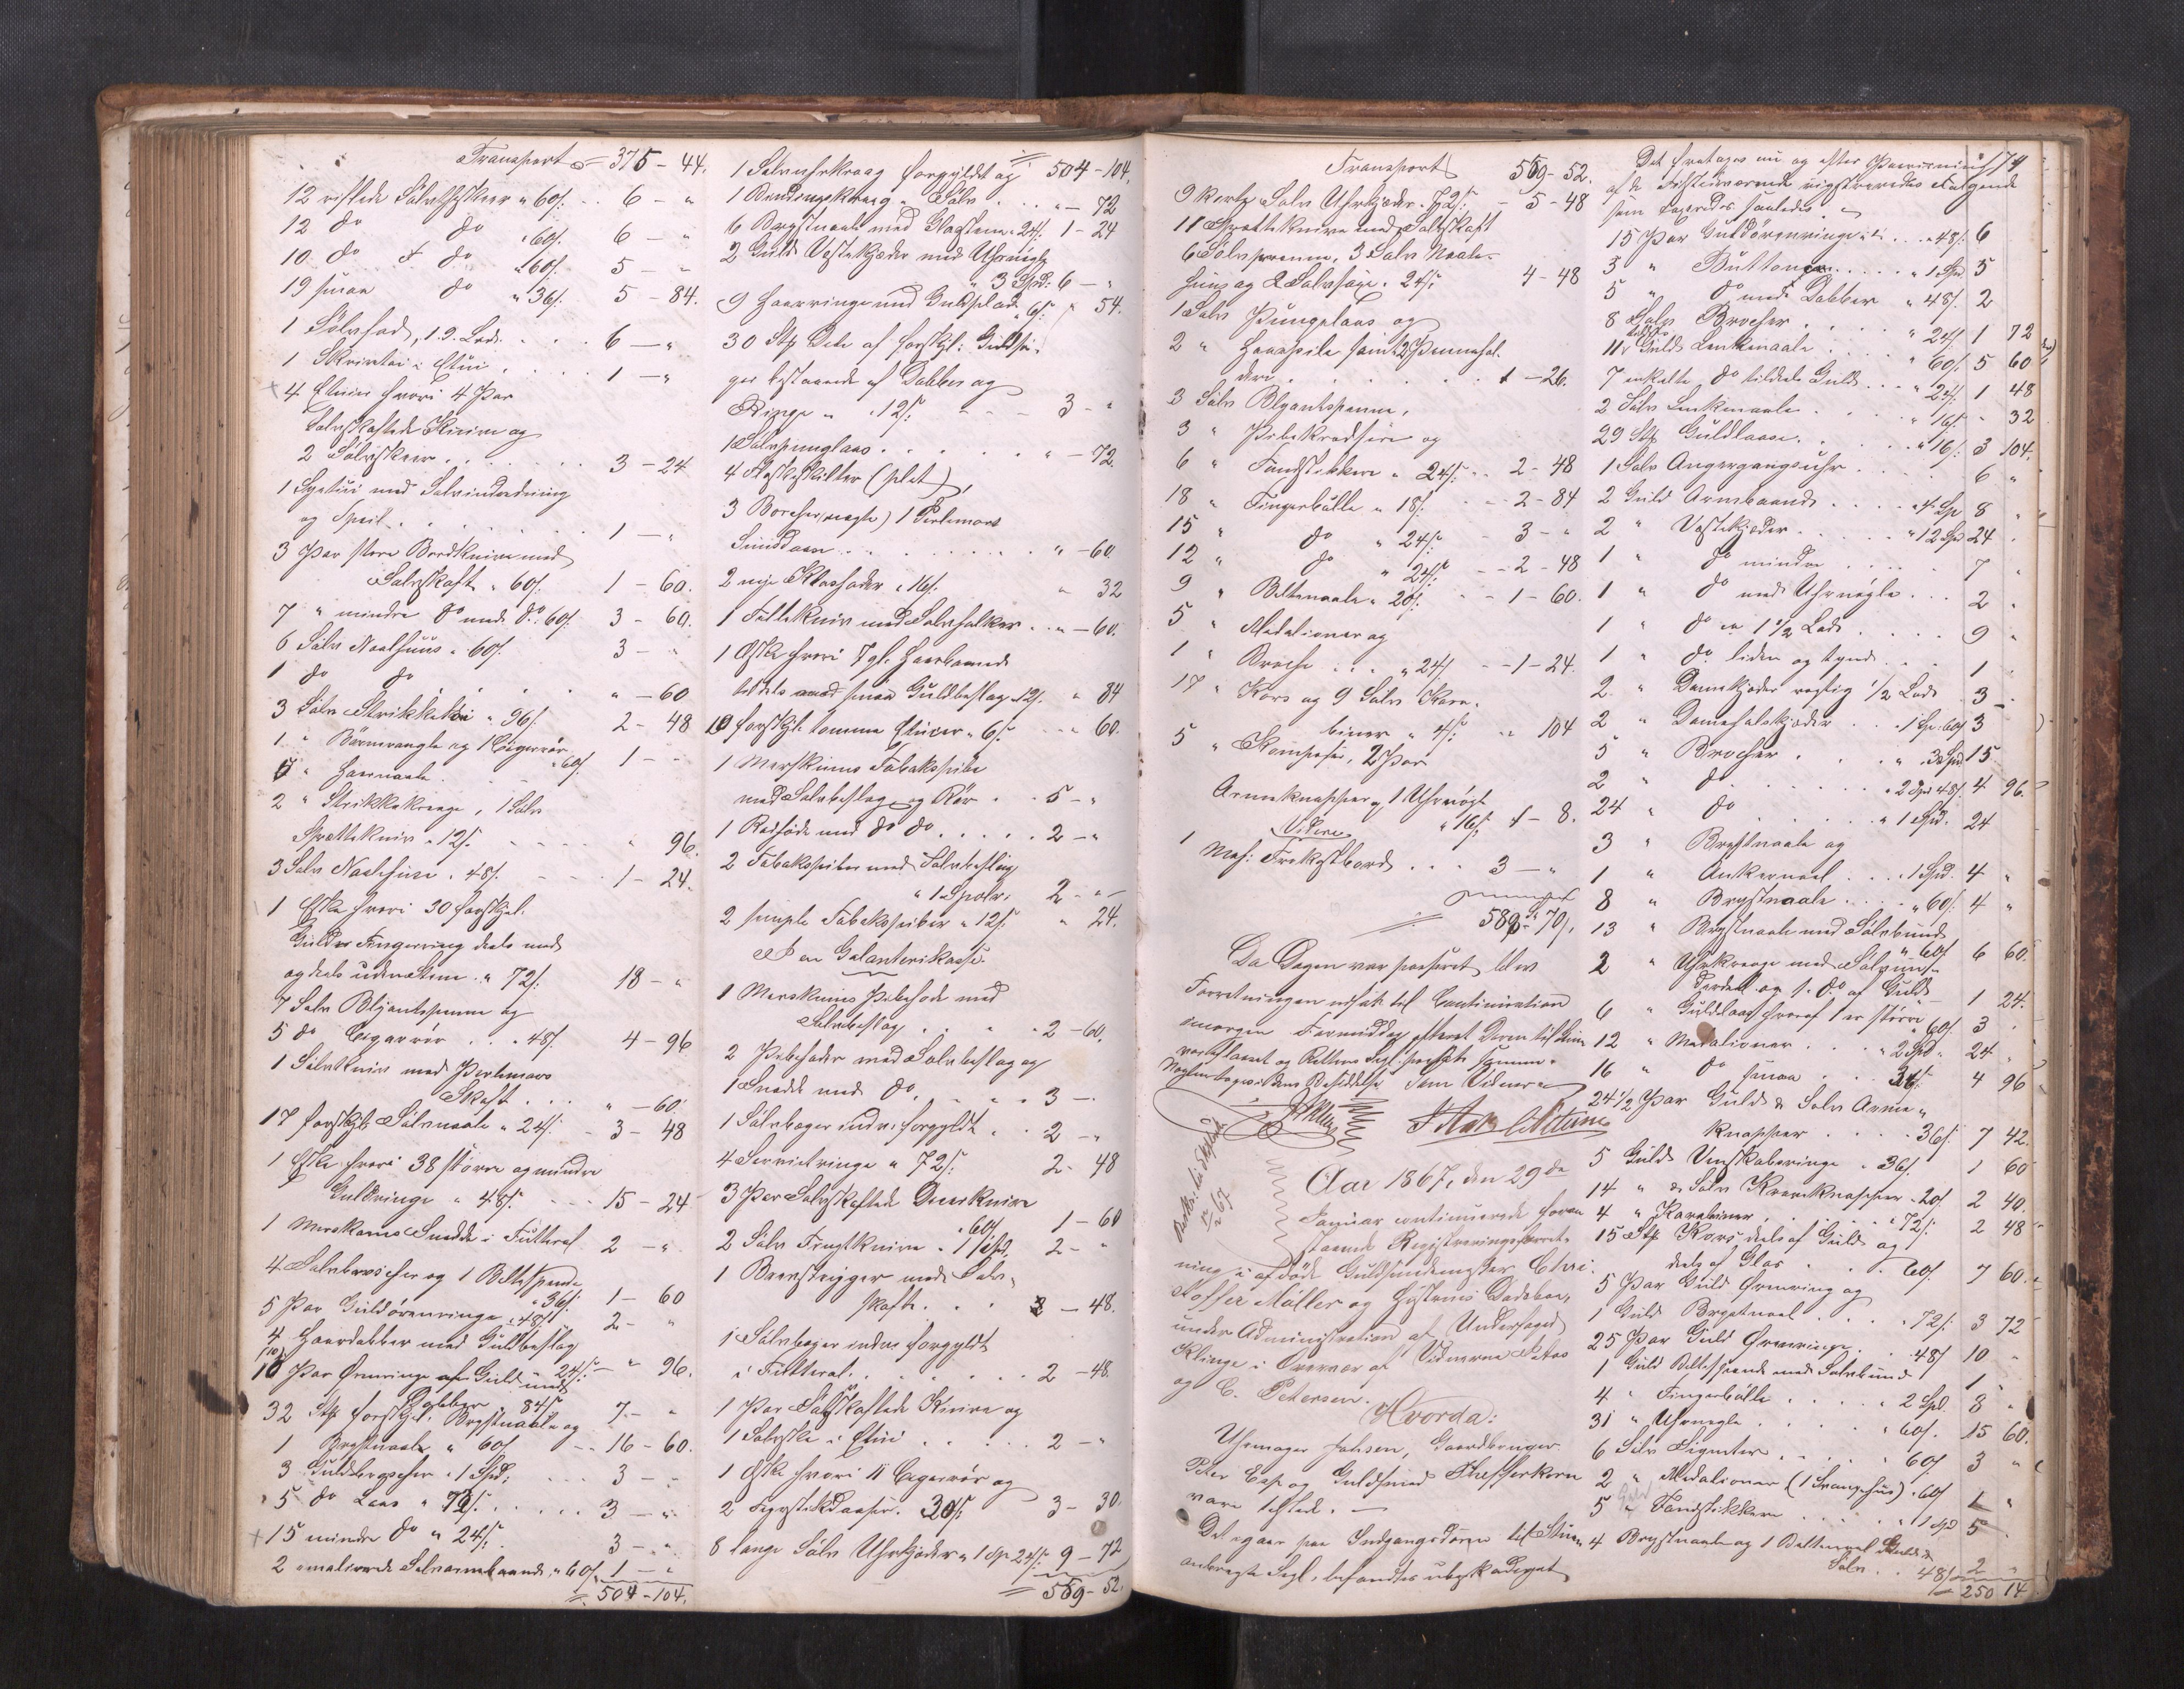 Transport = 375 - 44.
12 riflede Sølvtheskeer " 60/. .. 6 - "
12 do do " 60/. 6 - "
10 do do " 60/. 5 - "
19 smaa do " 36/. 5 - 84.
1 Sølvfad, 19. Lod. . . . 6 - "
1 Skrivetøi i Etui . . . . 1 - "
4 Etuier hvori 4 Par
Sølvskaftede Knive og
2 Sølvskeer . . . . . 3 - 24
1 Syetui med Sølvindredning
og Speil . . . . . 1 - "
3 Par store Bordknive med
Sølvskaft " 60/. 1 - 60.
7 " mindre do med do " 60/. 3 - 60.
6 Sølv Naalhuus " 60/. 3 - "
1 do do . . . . " - 60
3 Sølv Strikketøi " 96/. 2 - 48
1 " Børnerangle og 1 Cigarrør " 60/. 1 - "
" Haarnaale
2 " Strikkekroge, 1 Sølv
Sprættekniv " 12/. " 96.
3 Sølv Naalehuse " 48/. 1 - 24.
1 Æske hvori 30 forskjel.
Guld Fingerring deels med
og deels uden Stene " 72/. 18 - "
7 Sølv Blyantspenne og
5 do Cigarrør . . " 48/. 4 - 96
1 Sølvkniv med Perlemors
Skaft . . . " - 60.
17 forskjl. Sølvnaale " 24/. 3 - 48
1 Æske hvori 38 større og mindre
Guldringe " 48/. 15 - 24
1 Merskums Snadde i Futteral 2 - "
4 Sølvbrocher og 1 Beltespende
" 36/. 1 - 60
5 Par Guldørenringe " 48/. 2 - "
4 Haardobber med Guldbeslag
" 24/. " 96.
10 Par Ørenringe af Guld med
Dobber " 84/. 7 - "
32 Stk forskjel. Brystnaale og
1 Brystnaale " 60/. 16 - 60.
3 Guldbrocher " 1 Spd. 3 - "
5 do Laas " 72/. . . . 3 - "
15 mindre do " 24/. 3 - "
2 emalierede Sølvarmbaand " 60/. 1 - "
= 504 - 104.
= 504 - 104.
1 Sølvuhrkrog forgyldt og
1 Sølv . . . " - 72
6 Brystnaale med Glasstene " 24/. 1 - 24
2 Guld Vestekjeder med Uhrnøgle
" 3 Spd. 6 - "
9 Haarringe med Guldplade " 6/. " 54.
30 Stk Dele af forskjl. Guldsa-
ger bestaaende af Dobber og
Ringe " 12/. - - - 3 - "
1 Sølvpunglaas . . . . . " - 72.
4 Flaskeskilter (plet),
3 Brocher (uægte) 1 Perlemors
Snusdaase . . . . . . " - 60.
2 nye " 16/. " 32
1 Foldekniv med Sølvholker . . " - 60.
1 Æske hvori 7 gl. Haarbaand
tildels med smaa Guldbeslag " 12/. " 84
10 forskjl. tomme Etuier " 6/. . . " 60.
1 Merskums Tobakspibe
med Sølvbeslag og Rør . . 5 - "
1 do do . . . . . 2 - "
2 Tobakspiber med Sølvbeslag
" 1 Spdlr. 2 - " -
2 simple Tobakspiber " 12/. " 24.
I en Galanterikasse
1 Merskums Pibehode med
Sølvbeslag . . . . . 2 - 60.
2 Pibehoder med Sølvbeslag og
1 Snadde med do . . . . 3 - .
1 Sølvbæger indv. forgyldt . . 2 - "
4 Servietringe " 72/. 2 - 48
3 Par Sølvskaftede Knive
" 60/. 1 - 60
2 Sølv Frugtknive " 1 Spd. 2 - "
1 med Sølv-
skaft . . . " - 48.
1 Sølvbæger indv. forgyldt
i Futteral . . . . . . . 2 - 48.
1 Par Sølvskaftede Knive og
1 Sølvske i Etui . . . . . 2 - "
1 Æske hvori 11 Cigarrør og
2 Fyrstikdaaser. 30/. 3 - 30.
8 lange Sølv Uhrkjeder " 1 Sp. 24/. 9 - 72
= 569 - 52.
Transport 569 - 52.
9 korte Sølv Uhrkjeder " 72/. - 5 - 48
11 Sprætteknive med Sølvskaft
6 Sølvpenne, 3 Sølv Naale-
huus og 2 Sølvsaxe " 24/. 4 - 48
1 Sølv Pungelaas og
2 " samt 2 Penneskaf-
dere . . . . . . . . 1 - 26.
3 Sølv Blyantspenne,
3 " Pibekradsere og
6 " Tandstikkere " 24/. . . 2 - 48
18 " Fingerbølle " 18/. - - 2 - 84
15 " do " 24/. - 3 - "
12 " do " 24/. - - 2 - 48
9 " Beltenaale " 20/. - - 1 - 60.
5 " Medalioner og
1 " Broche . . . " 24/. - - 1 - 24.
17 " Kors og 9 Sølv Kara-
biner " 4/. " 104
5 " 2 Par
Armeknapper og 1 Uhrnøgl " 16/. 1 - 8.
Videre
1 Mah: Frokostbord . . . 3 - "
= 589 - 70/.
Da Dagen var passeret blev
Forretningen udsat til Continuation
imorgen Formiddag, efterat Døren til Stuen
var aflaaset og Rettens Segl paasat samme.
Nøglen toges i dens Besiddelse. Som Vidner:
Aar 1867, den 29de
Januar continuerede foran-
staaende Registreringsforret-
ning i afdøde Guldsmedmester Chri-
stoffer Møller og Hustrues Dødsboe,
under Administration af Undersøgsd
Klinge i Overvær af Vidnerne Aitas
og C. Petersen.
Hvorda:
Uhrmager Johsen, Gaardbruger
Peter Esp og Guldsmed
vare tilsted. -
Det igaar paa Indgangsdøren til Stuen
anbragte Segl, befandtes ubeskadiget
174
Det foretoges nu og efter Paavisning
af de Tilstedeværende registreredes Følgende
som taxeredes saaledes. -
15 Par Guldørenringe . . . " 48/. 6
5 " Buttoner . . . . . " 1 Spd. 5
5 " do med Dobber " 48/. 2
8 Sølv Brocher . . . . . " 24/. 1 72
11 Guld Lenkenaale . . . . " 60/. 5 60
7 enkelte do tildels Guld . . . " 24/. 1 48
2 Sølv Lenkenaale . . . . " 16/. " 32
29 Stk Guldlaase . . . . " 16/. 3 104.
1 Sølv Ankergangsuhr . . . . 6 "
2 Guld Armbaand . . . . " 4 Sp 8 "
2 " Vestekjeder . . . . " 12 Spd 24 .
1 " do mindre . . . . 7 "
1 " do med Uhrnøgle . . . 2 "
1 " do ca 1 1/2 Lod . . . . 9 "
1 " do liden og tynd . . . 1 .
2 " Damekjeder vægtig 1/2 Lod 3 -
2 " Damehalskjeder . . . 1 Sp. 60/. 3
5 " Brocher . . . . " 3 Spd 15.
2 " do . . . . . . " 2 Spd 48/. 4 96.
24 " do . . . . . . " 1 Spd. 24
3 " Brystnaale og
1 " Ankernaal . . . . 1 Spd. 4 "
8 " Brystnaale . . . . " 60/. 4 "
13 " Brystnaale med Sølvbund
" 60/. 6 60.
2 " Uhrkroge med Sølvun-
derdeel og 1 do af Guld - 1 24.
6 " Guldlaas hvoraf 1 er større " 60/. 3 .
12 " Medalioner . . . . . " 2 Spd " 24 "
16 " do smaa . . . 36/. 4 96
24 1/2 Par Guld & Sølv Arme-
knapper . . . . . 36/. 7 42.
5 Guld Venskabsringe " 36/. 1 60
14 " & Sølv Kraveknapper " 20/. 2 40.
4 " Karabiner . . . . . " 72/. 2 48
15 Stk Kors deels af Guld og
deels af Glas . . . . 60/. 7 60.
5 Par Guld Ørenring og
1 Guld Brystnaal . . . . " 72/. 3 72
25 Par Guld Ørenringe . . 48/. 10 "
1 Guld Beltespende med Sølvbund 1 "
4 " Fingerbølle . . . . . 2 Spd. 8 "
31 " Uhrnøgle . . . . . " 60/. 15 60.
6 Sølv Signeter . . . . . " 60/. 3 "
2 " Medalioner (1 Svampehus) " 60/. 1 "
5 Guld Tandstikkere . . . . " 1 Spd 5 .
4 Brystnaale og 1 Beltenaal Guld &
Sølv . . 48/. 2 "
= 250 14